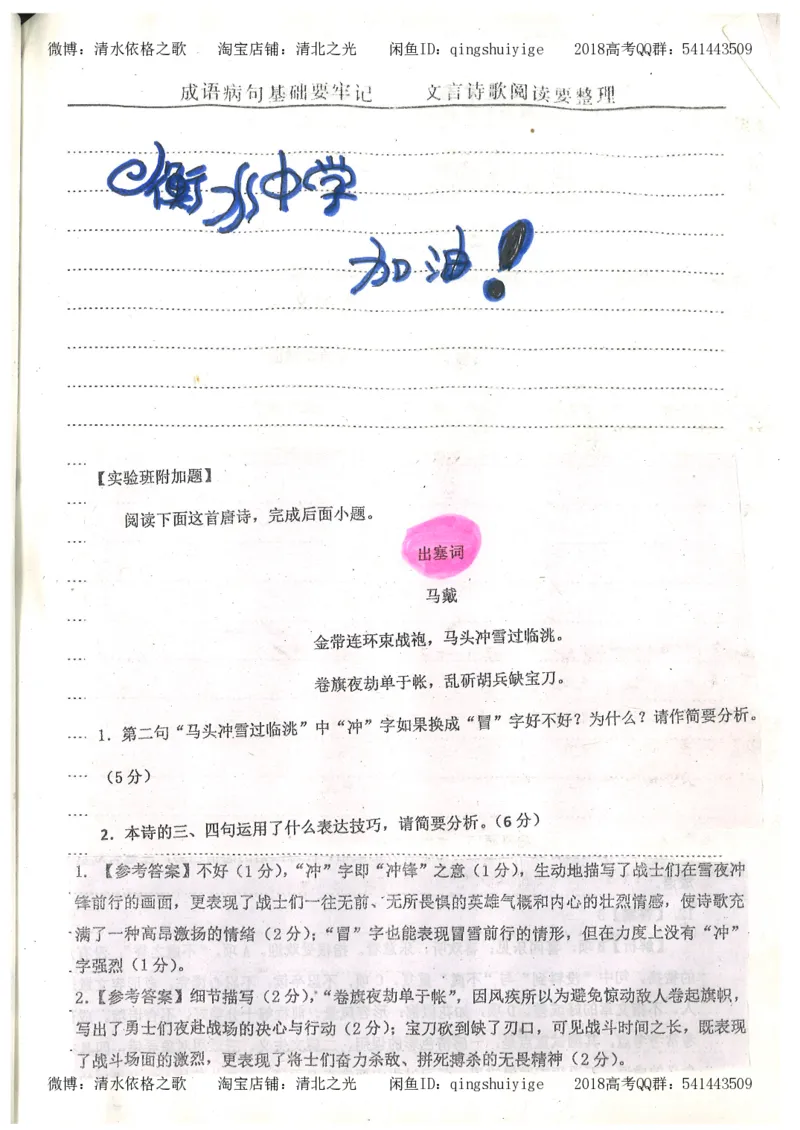 微博：清水依格之歌 淘宝店铺：清北之光 闲鱼ID：qingshuiyige 2018高考QQ群：541443509
成语病句基础要牢记 文言诗歌阅读要整理
@衡水中学
加油！
【实验班附加题】
阅读下面这首唐诗，完成后面小题。
出塞词
马戴
金带连环束战袍，马头冲雪过临洮。
卷旗夜劫单于帐，乱斫胡兵缺宝刀。
1．第二句“马头冲雪过临洮”中“冲”字如果换成“冒”字好不好？为什么？请作简要分析。
（5分）
2．本诗的三、四句运用了什么表达技巧，请简要分析。（6分）
1．【参考答案】不好（1分），“冲”字即“冲锋”之意（1分），生动地描写了战士们在雪夜冲
锋前行的画面，更表现了战士们一往无前、无所畏惧的英雄气概和内心的壮烈情感，使诗歌充
满了一种高昂激扬的情绪（2分）；“冒”字也能表现冒雪前行的情形，但在力度上没有“冲”
字强烈（1分）。
2．【参考答案】细节描写（2分），“卷旗夜劫单于帐”，因风疾所以为避免惊动敌人卷起旗帜，
写出了勇士们夜赴战场的决心与行动（2分）；宝刀砍到缺了刃口，可见战斗时间之长，既表现
了战斗场面的激烈，更表现了将士们奋力杀敌、拼死搏杀的无畏精神（2分）。
微博：清水依格之歌 淘宝店铺：清北之光 闲鱼ID：qingshuiyige 2018高考QQ群：541443509